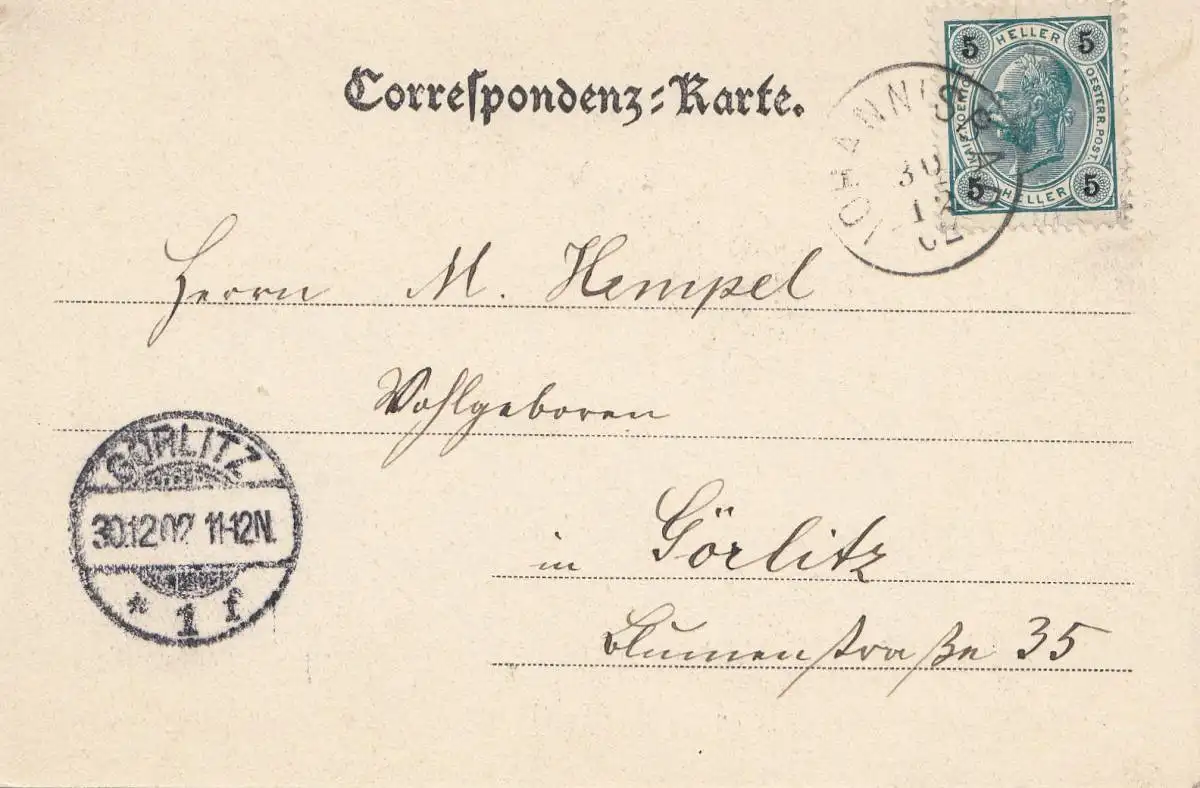 Correspondenz-Karte.
5 HELLER 5
KAIS. KOENIGL. OESTERR. POST.
5 HELLER 5
JOHANNISBAD
30
12
02
Herrn M. Hempel
Wohlgeboren
GÖRLITZ
30.12.02 11-12N.
* 1 f
in Görlitz
Blumenstraße 35